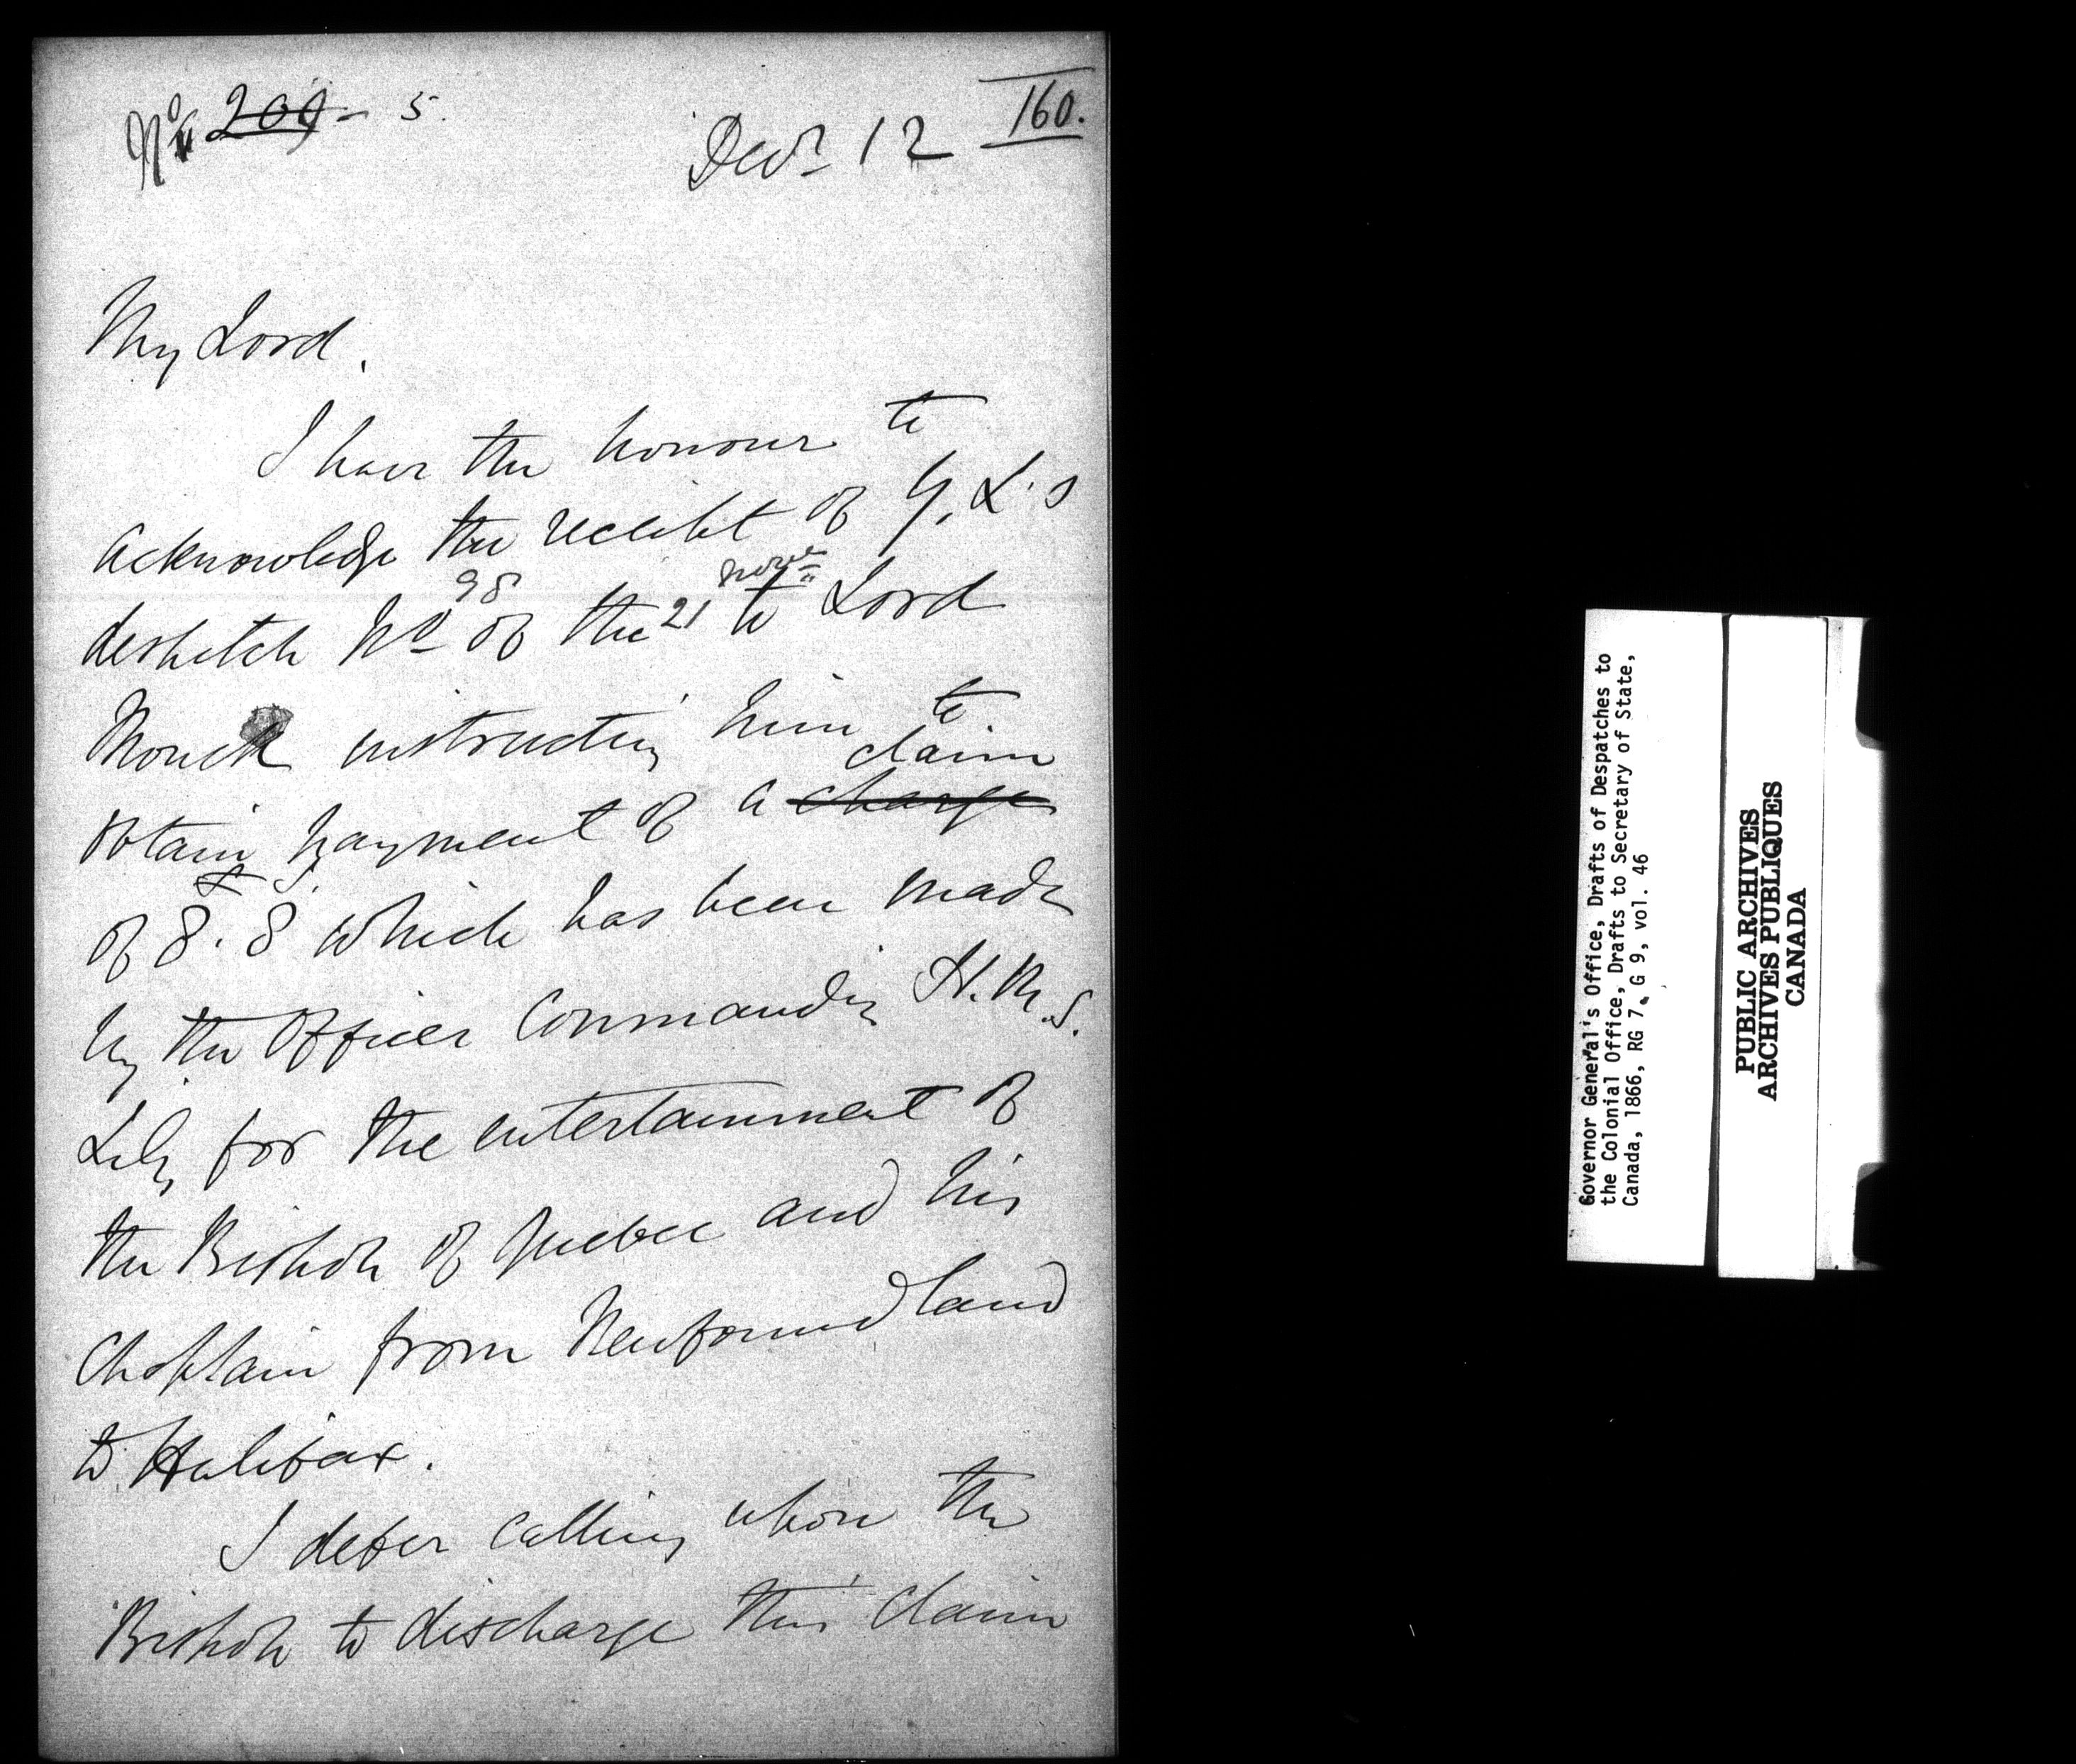 No 209 - 5.
Decr 12
160.
My Lord,
I have the honour to
acknowledge the receipt of Y. L's
despatch No 98 of the 21 Novr to Lord
Monck instructing him to
obtain payment of a charge claim
of £8. 8 which has been made
by the Officer Commanding H.M.S.
Lily for the entertainment of
the Bishop of Quebec and his
Chaplain from Newfoundland
to Halifax.
I defer calling upon the
Bishop to discharge this claim
Governor General's Office, Drafts of Despatches to
the Colonial Office, Drafts to Secretary of State,
Canada, 1866, RG 7, G 9, vol. 46
PUBLIC ARCHIVES
ARCHIVES PUBLIQUES
CANADA